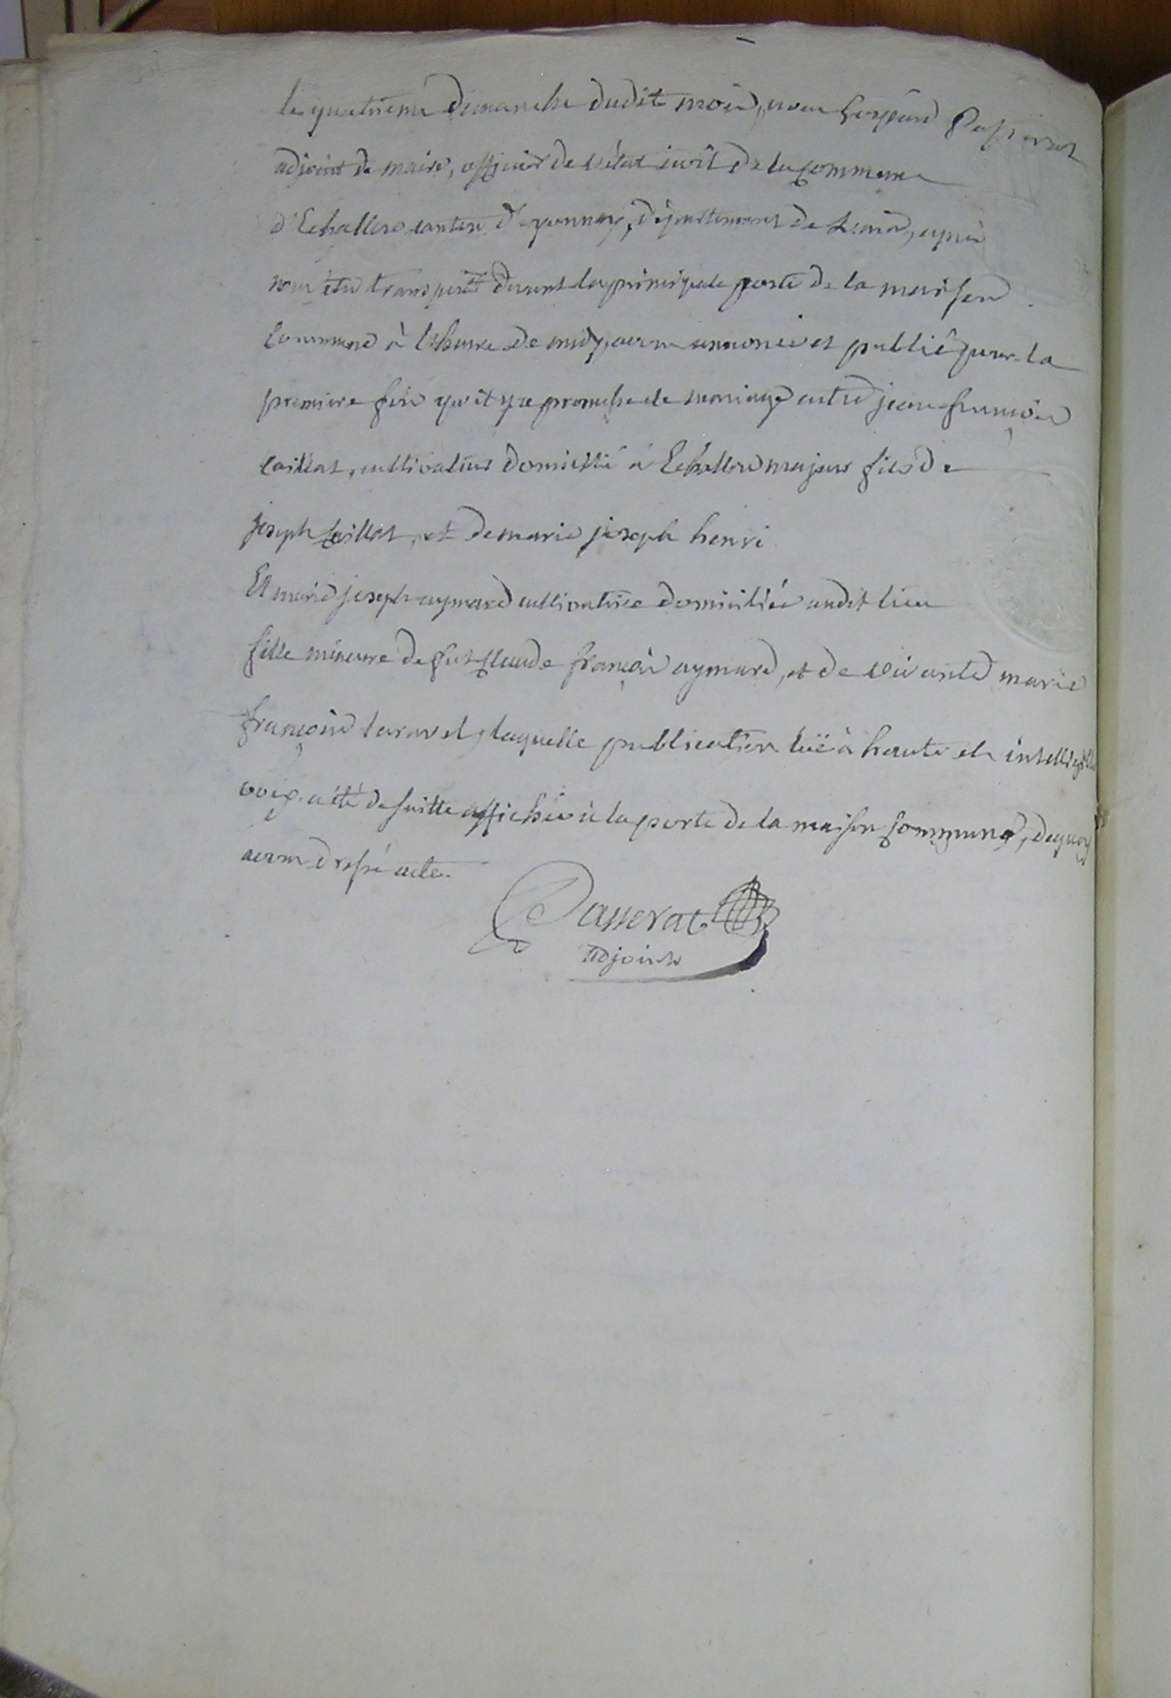 le quatrieme dimanche dudit mois, nous Gaspard Passerat
adjoint de maire, officier de l'état civil de la commune
d'Echallon canton d'oyonnax, département de Lain, après
nous être transporté devant la principale porte de la maison
commune à l'heure de midy, avons annoncé et publié pour la
premiere fois qu'il y a promesse de mariage entre jean françois
Caillat, cultivateur domicilié à Echallon majeur fils de
joseph Caillat, et de marie joseph henri
Et marie joseph aymard cultivatrice domiciliée audit lieu
fille mineure de fut Claude françois aymard, et de vivante marie
françoise laravel, laquelle publication luë à haute et intelligible
voix a été de suitte affichée à la porte de la maison commune, dequoy
avons dressé acte.
Passerat
adjoint